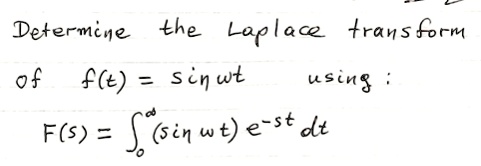 Determine the Laplace transform
of f(t) = sin wt using :
F(s) = ∫₀^∞ (sin wt) e^-st dt